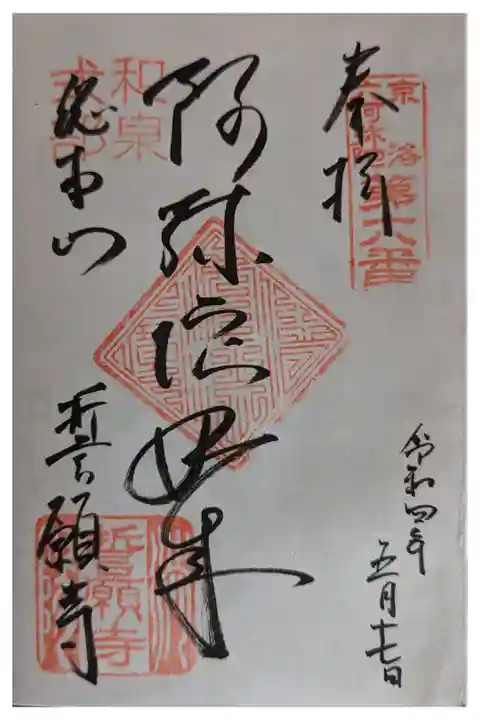 奉拝
京洛
六阿弥陀
第六番
阿弥陀如来
和泉
式部
総本山
誓願寺
誓願寺
令和四年
五月十七日